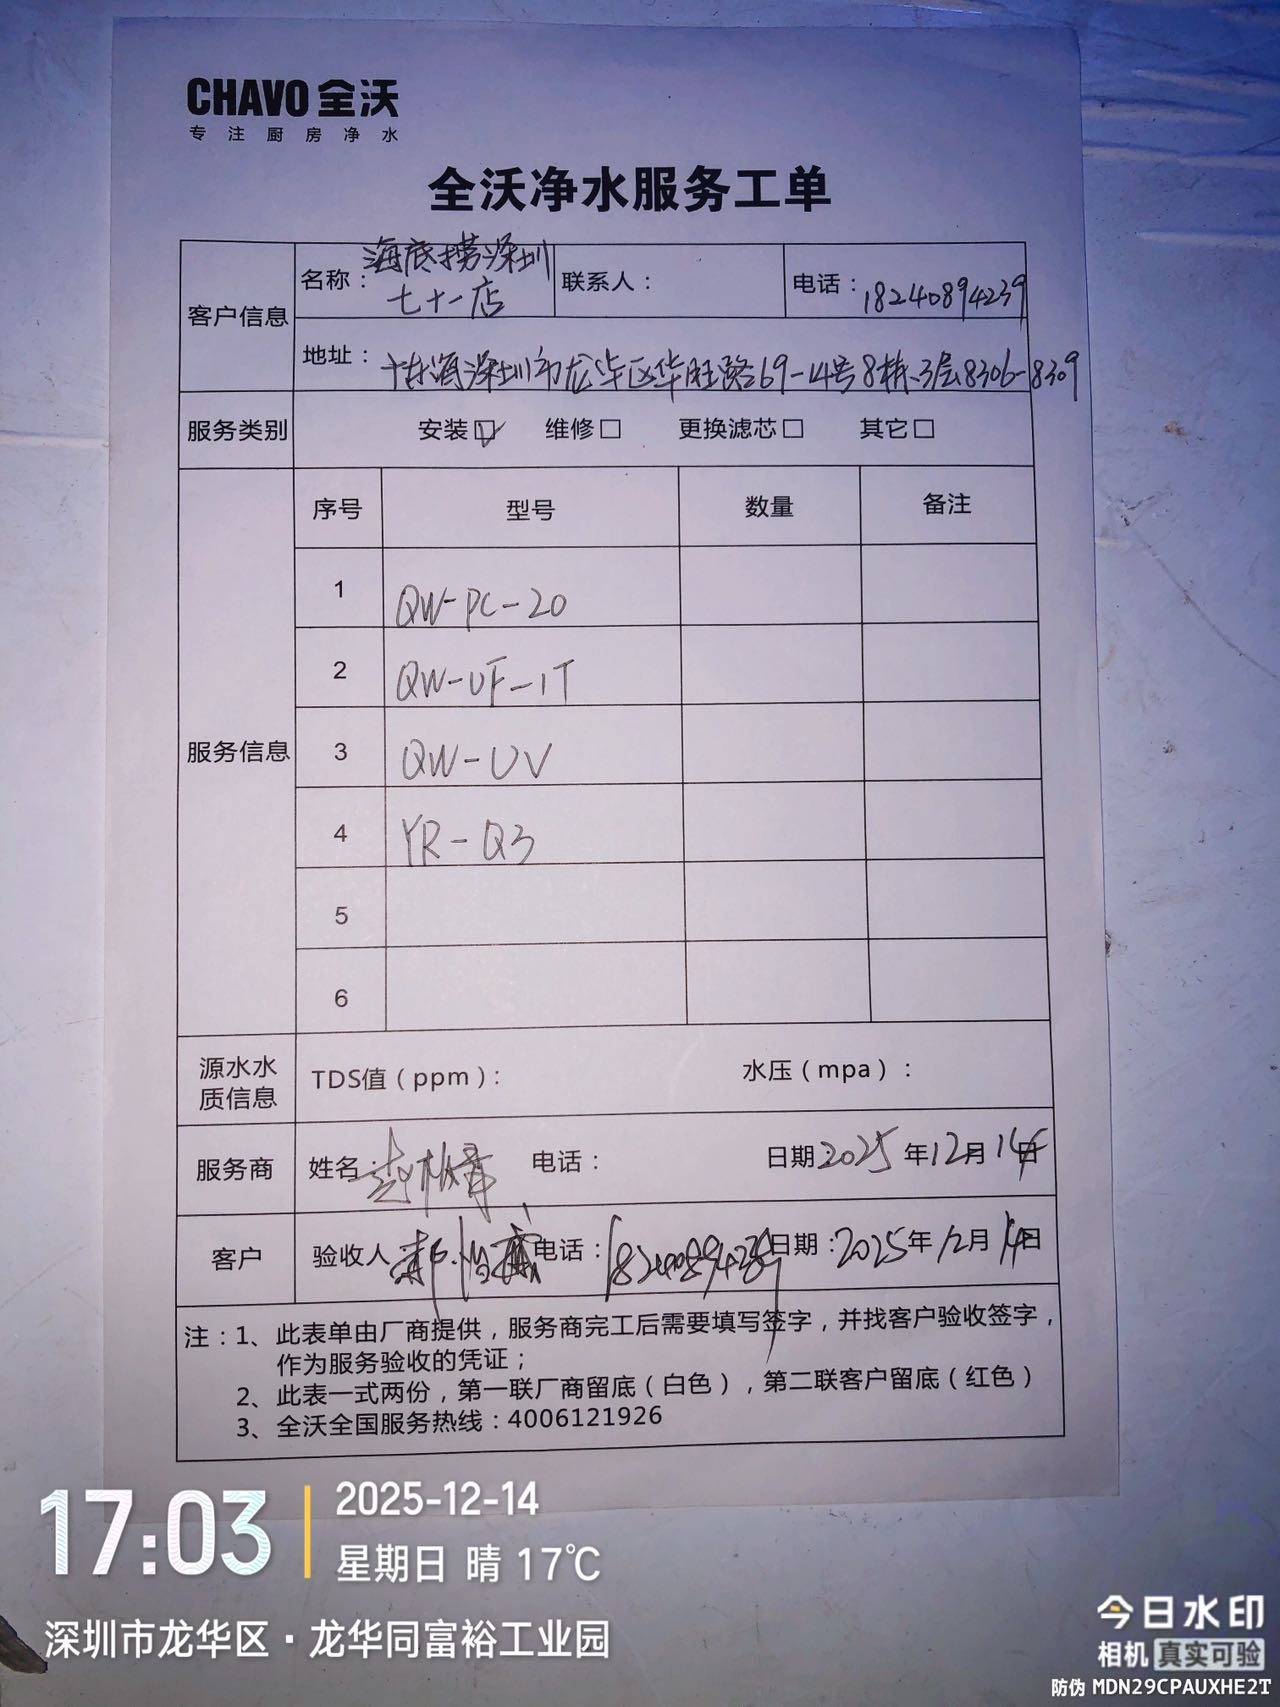 CHAVO 全沃
专注厨房净水
全沃净水服务工单
客户信息
名称：海底捞深圳
七十一店
联系人：
电话：18240894239
地址：深圳市龙华区华旺路69-4号8栋3层8306-8309
服务类别 安装☑ 维修□ 更换滤芯□ 其它□
服务信息
序号 型号 数量 备注
1 QW-PC-20
2 QW-UF-1T
3 QW-UV
4 YR-Q3
5
6
源水水质信息 TDS值（ppm）： 水压（mpa）：
服务商 姓名 赵 电话： 日期 2025年12月14日
客户 验收人 郝 电话：18240894239 日期：2025年12月14日
注：1、此表单由厂商提供，服务商完工后需要填写签字，并找客户验收签字，
作为服务验收的凭证；
2、此表一式两份，第一联厂商留底（白色），第二联客户留底（红色）
3、全沃全国服务热线：4006121926
17:03 2025-12-14
星期日 晴 17℃
深圳市龙华区·龙华同富裕工业园
今日水印
相机 真实可验
防伪 MDN29CPAUXHE2T